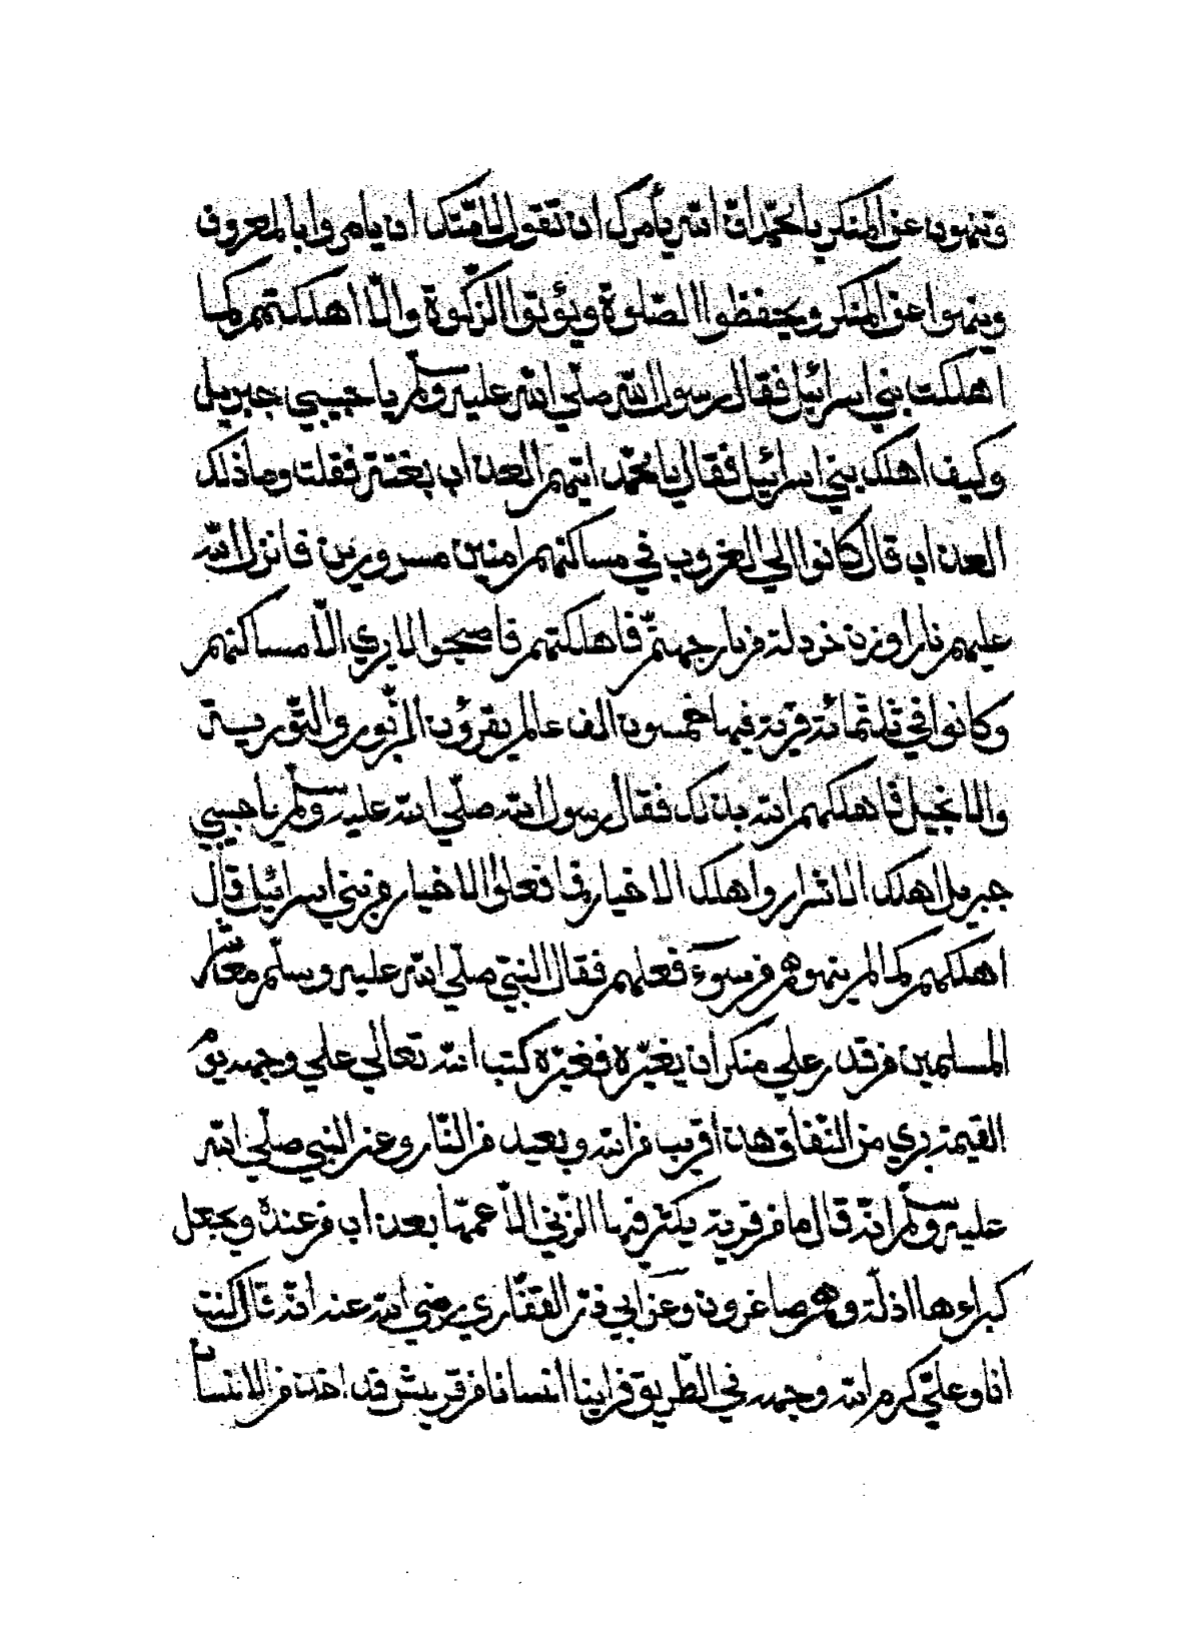 وتنهون عن المنكر يا محمّد انّ الله يأمرك ان تقول لامّتك ان يامروا بالمعروف
وينهوا عن المنكر ويحفظوا الصّلوة ويؤتوا الزّكوة والّا اهلكتهم كما
اهلكت بني اسرائيل فقال رسول الله صلّي الله عليه وسلم يا حبيبي جبريل
وكيف اهلك بني اسرائيل فقال يا محمّد اتيهم العذاب بغتة فقلت وما ذلك
العذاب قال كانوا الي الغروب في مساكنهم امنين مسرورين فانزل الله
عليهم نارا وزن خردلة من نار جهنّم فاهلكتهم فاصبحوا لا يري الّا مساكنهم
وكانوا في ثلثمائة قرية فيها خمسون الف عالم يقرؤن الزّبور والتّورية
والانجيل فاهلكهم الله بذلك فقال رسول الله صلّي الله عليه وسلم يا حبيبي
جبريل اهلك الاشرار واهلك الاخيار فما فعلوا الاخيار من بني اسرائيل قال
اهلكهم لما لم ينهوهم من سوء فعلهم فقال النبيّ صلّي الله عليه وسلّم معاشر
المسلمين من قدر علي منكر ان يغيّره فغيّره كتب الله تعالي علي وجهه يوم
القيمة بري من النّفاق هذا اقرب من الله وبعيد من النّار وعن النبي صلّي الله
عليه وسلم انّه قال ما من قرية يكثر فيها الزّني الّا عمّها بعذاب من عنده ويجعل
كبراءها اذلّة وهم صاغرون وعن ابي ذر الغفّاري رضي الله عنه انّه قال كنت
انا وعليّ كرم الله وجهه في الطّريق فراينا انسانا من قريش قد اخذ من الانسان